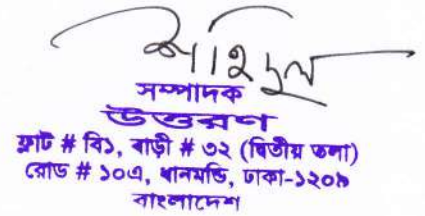 শহিদুল
সম্পাদক
উত্তরণ
ফ্লাট # বি১, বাড়ী # ৩২ (দ্বিতীয় তলা)
রোড # ১০এ, ধানমন্ডি, ঢাকা-১২০৯
বাংলাদেশ